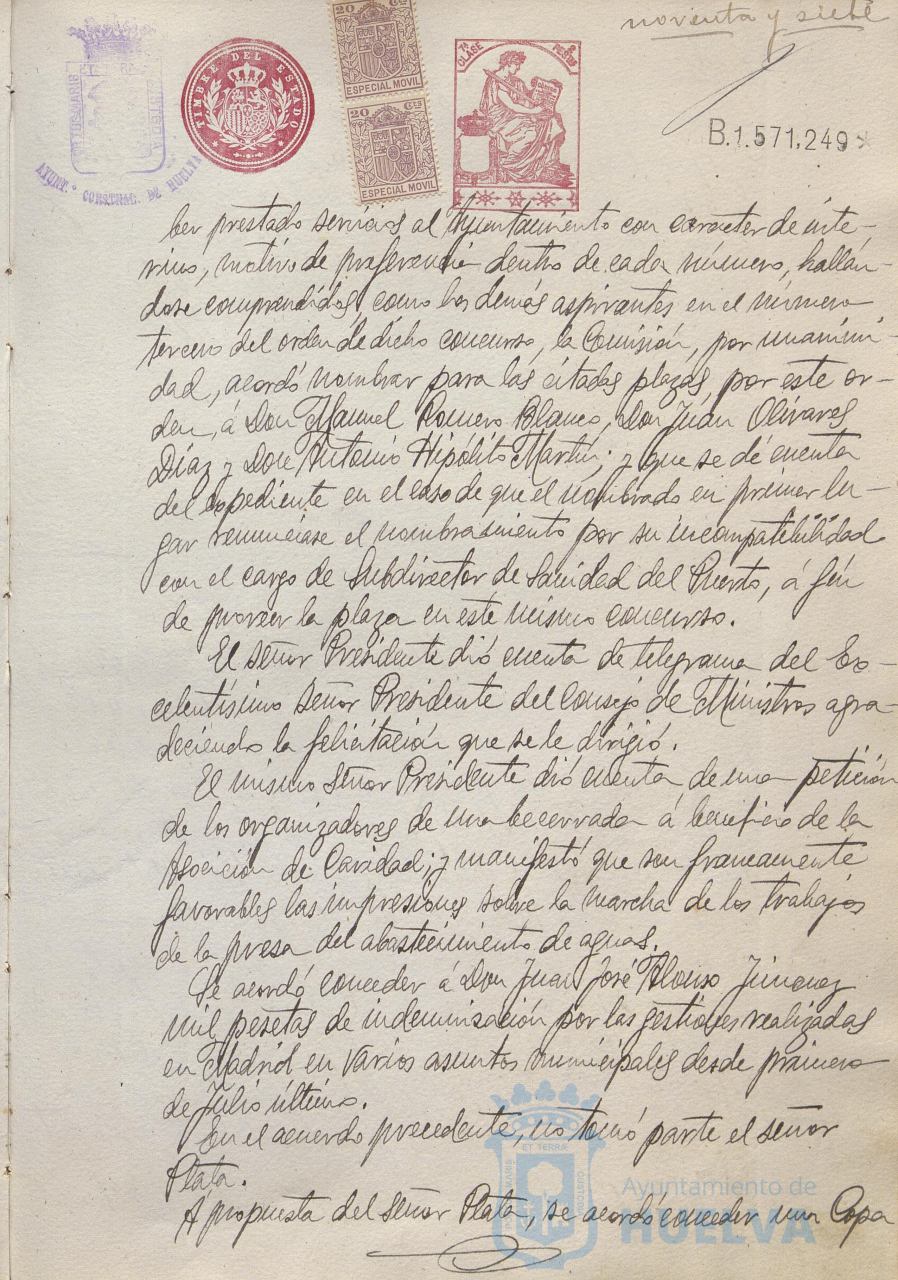 noventa y siete
TIMBRE DEL ESTADO
20 Cts
ESPECIAL MOVIL
20 Cts
ESPECIAL MOVIL
7ª CLASE
B.1.571,249
AYUNT. CONSTNAL. DE HUELVA
ber prestado servicios al Ayuntamiento con caracter de inte-
rino, motivo de preferencia dentro de cada número, hallán-
dose comprendidos, como los demás aspirantes en el número
tercero del orden de dicho concurso, la Comisión, por unanimi-
dad, acordó nombrar para las citadas plazas, por este or-
den, á Don Manuel Romero Blanco, Don Juán Olivares
Díaz y Don Antonio Hipólito Martín; y que se dé cuenta
del expediente en el caso de que el nombrado en primer lu-
gar renunciase el nombramiento por su incompatibilidad
con el cargo de Subdirector de Sanidad del Puerto, á fin
de proveer la plaza en este mismo concurso.
El señor Presidente dió cuenta de telegrama del Ex-
celentísimo señor Presidente del Consejo de Ministros agra-
deciendo la felicitación que se le dirigió.
El mismo Señor Presidente dió cuenta de una petición
de los organizadores de una becerrada á beneficio de la
Asocición de Caridad; y manifestó que son francamente
favorables las impresiones sobre la marcha de los trabajos
de la presa del abastecimiento de aguas.
Se acordó conceder á Don Juan José Alonso Jimenez
mil pesetas de indemnisación por las gestiones realizadas
en Madrid en varios asuntos municipales desde primero
de Julio último.
En el acuerdo precedente, no tomó parte el señor
Plata.
A propuesta del Señor Plata, se acordó conceder una Copa
ET TERRÆ
Ayuntamiento de
HUELVA